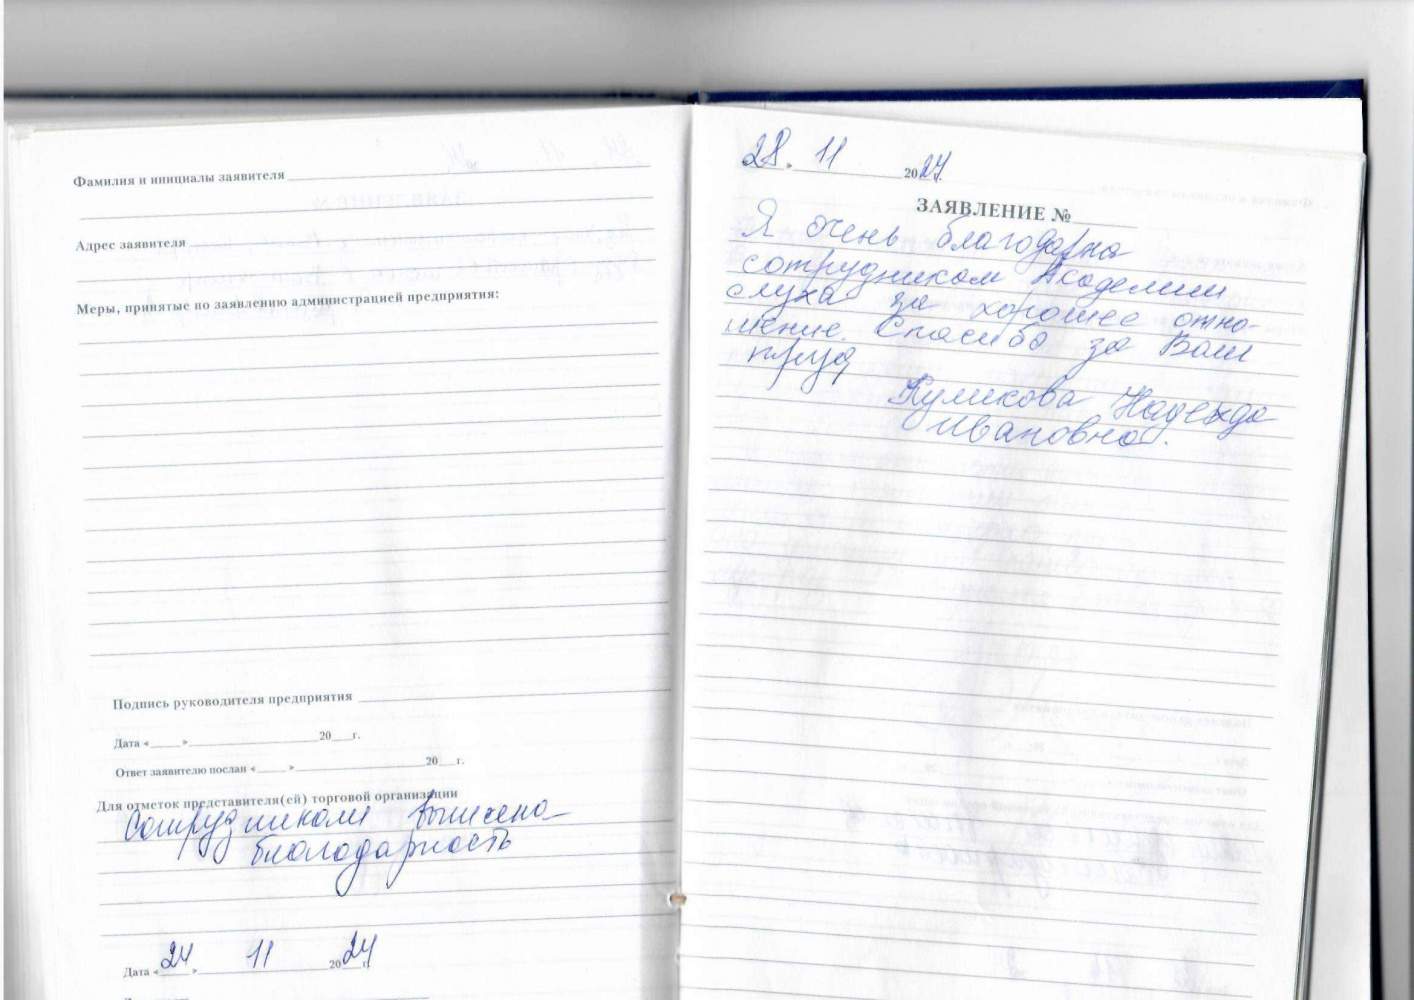 Фамилия и инициалы заявителя
Адрес заявителя
Меры, принятые по заявлению администрацией предприятия:
Подпись руководителя предприятия
Дата « » 20 г.
Ответ заявителю послан « » 20 г.
Для отметок представителя(ей) торговой организации
Сотрудникам вынесена
благодарность
Дата « 24 » 11 2024 г.
« 28 » 11 2024
ЗАЯВЛЕНИЕ №
Я очень благодарна
сотрудникам Академии
слуха за хорошее отно-
шение. Спасибо за Ваш
труд
Куликова Надежда
Ивановна.